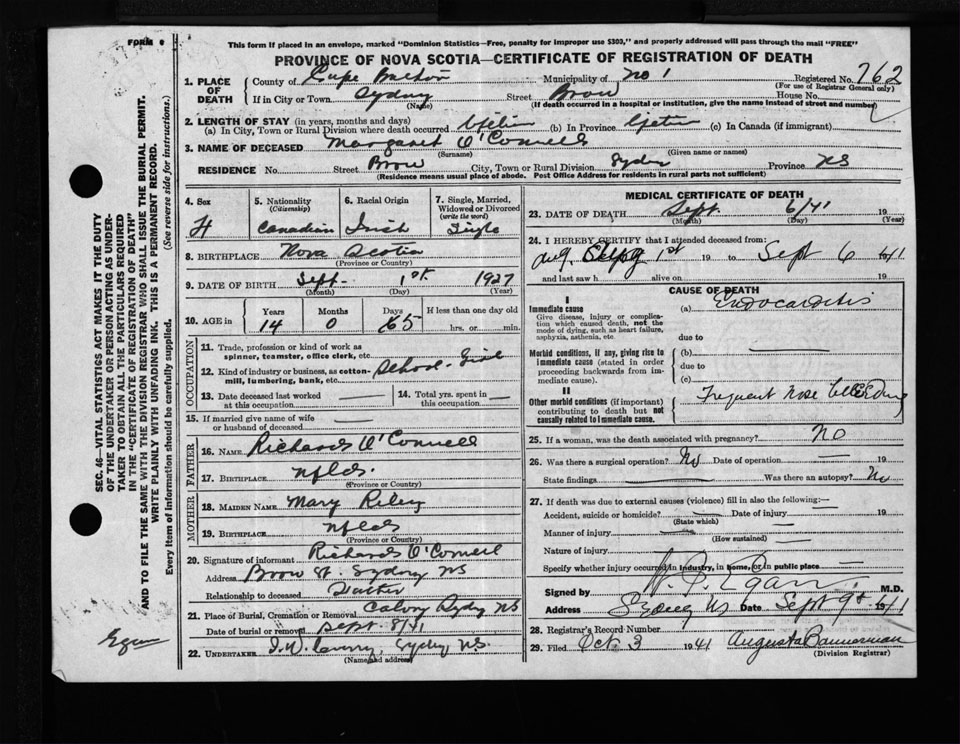 FORM 6
This form if placed in an envelope, marked "Dominion Statistics—Free, penalty for improper use $300," and properly addressed will pass through the mail "FREE"
PROVINCE OF NOVA SCOTIA—CERTIFICATE OF REGISTRATION OF DEATH
SEC. 46—VITAL STATISTICS ACT MAKES IT THE DUTY
OF THE UNDERTAKER OR PERSON ACTING AS UNDER-
TAKER TO OBTAIN ALL THE PARTICULARS REQUIRED
IN THE "CERTIFICATE OF REGISTRATION OF DEATH"
AND TO FILE THE SAME WITH THE DIVISION REGISTRAR WHO SHALL ISSUE THE BURIAL PERMIT.
WRITE PLAINLY WITH UNFADING INK. THIS IS A PERMANENT RECORD.
Every item of information should be carefully supplied. (See reverse side for instructions.)
1. PLACE OF DEATH County of Cape Breton Municipality of No 1 Registered No. 762
(For use of Registrar General only)
If in City or Town Sydney Street House No.
(Name) (If death occurred in a hospital or institution, give the name instead of street and number)
2. LENGTH OF STAY (in years, months and days)
(a) In City, Town or Rural Division where death occurred (b) In Province (c) In Canada (if immigrant)
3. NAME OF DECEASED Margaret O'Connell
(Surname) (Given name or names)
RESIDENCE No. Street City, Town or Rural Division Sydney Province NS
(Residence means usual place of abode. Post Office Address for residents in rural parts not sufficient)
4. Sex F
5. Nationality (Citizenship) Canadian
6. Racial Origin Irish
7. Single, Married, Widowed or Divorced (write the word) Single
8. BIRTHPLACE Nova Scotia
(Province or Country)
9. DATE OF BIRTH Sept. 1st 1927
(Month) (Day) (Year)
10. AGE in Years Months Days If less than one day old
14 0 hrs. or min.
OCCUPATION
11. Trade, profession or kind of work as spinner, teamster, office clerk, etc.
12. Kind of industry or business, as cotton-mill, lumbering, bank, etc. School Girl
13. Date deceased last worked at this occupation
14. Total yrs. spent in this occupation
15. If married give name of wife or husband of deceased
FATHER
16. NAME Richard O'Connell
17. BIRTHPLACE Nfld.
(Province or Country)
MOTHER
18. MAIDEN NAME Mary Riley
19. BIRTHPLACE Nfld
(Province or Country)
20. Signature of informant Richard O'Connell
Address St. Sydney NS
Relationship to deceased Father
21. Place of Burial, Cremation or Removal Calvary Sydney NS
Date of burial or removal Sept. 8/41
22. UNDERTAKER Sydney NS.
(Name and address)
MEDICAL CERTIFICATE OF DEATH
23. DATE OF DEATH Sept. 6/41 19
(Month) (Day) (Year)
24. I HEREBY CERTIFY that I attended deceased from:
Aug. 1st 19 to Sept 6 41
and last saw h alive on 19
CAUSE OF DEATH
I
Immediate cause (a) Endocarditis
Give disease, injury or complication which caused death, not the mode of dying, such as heart failure, asphyxia, asthenia, etc.
due to
Morbid conditions, if any, giving rise to immediate cause (stated in order proceeding backwards from immediate cause). (b)
due to
(c)
II
Other morbid conditions (if important) contributing to death but not causally related to immediate cause.
Frequent Nose Bleeding
25. If a woman, was the death associated with pregnancy? No
26. Was there a surgical operation? No Date of operation 19
State findings Was there an autopsy? No
27. If death was due to external causes (violence) fill in also the following:—
Accident, suicide or homicide? Date of injury 19
(State which)
Manner of injury
(How sustained)
Nature of injury
Specify whether injury occurred in industry, in home, or in public place
Signed by Egan M.D.
Address Sydney NS Date Sept 9th 1941
28. Registrar's Record Number
29. Filed Oct. 3 1941 Augusta Bannerman
(Division Registrar)
Egan